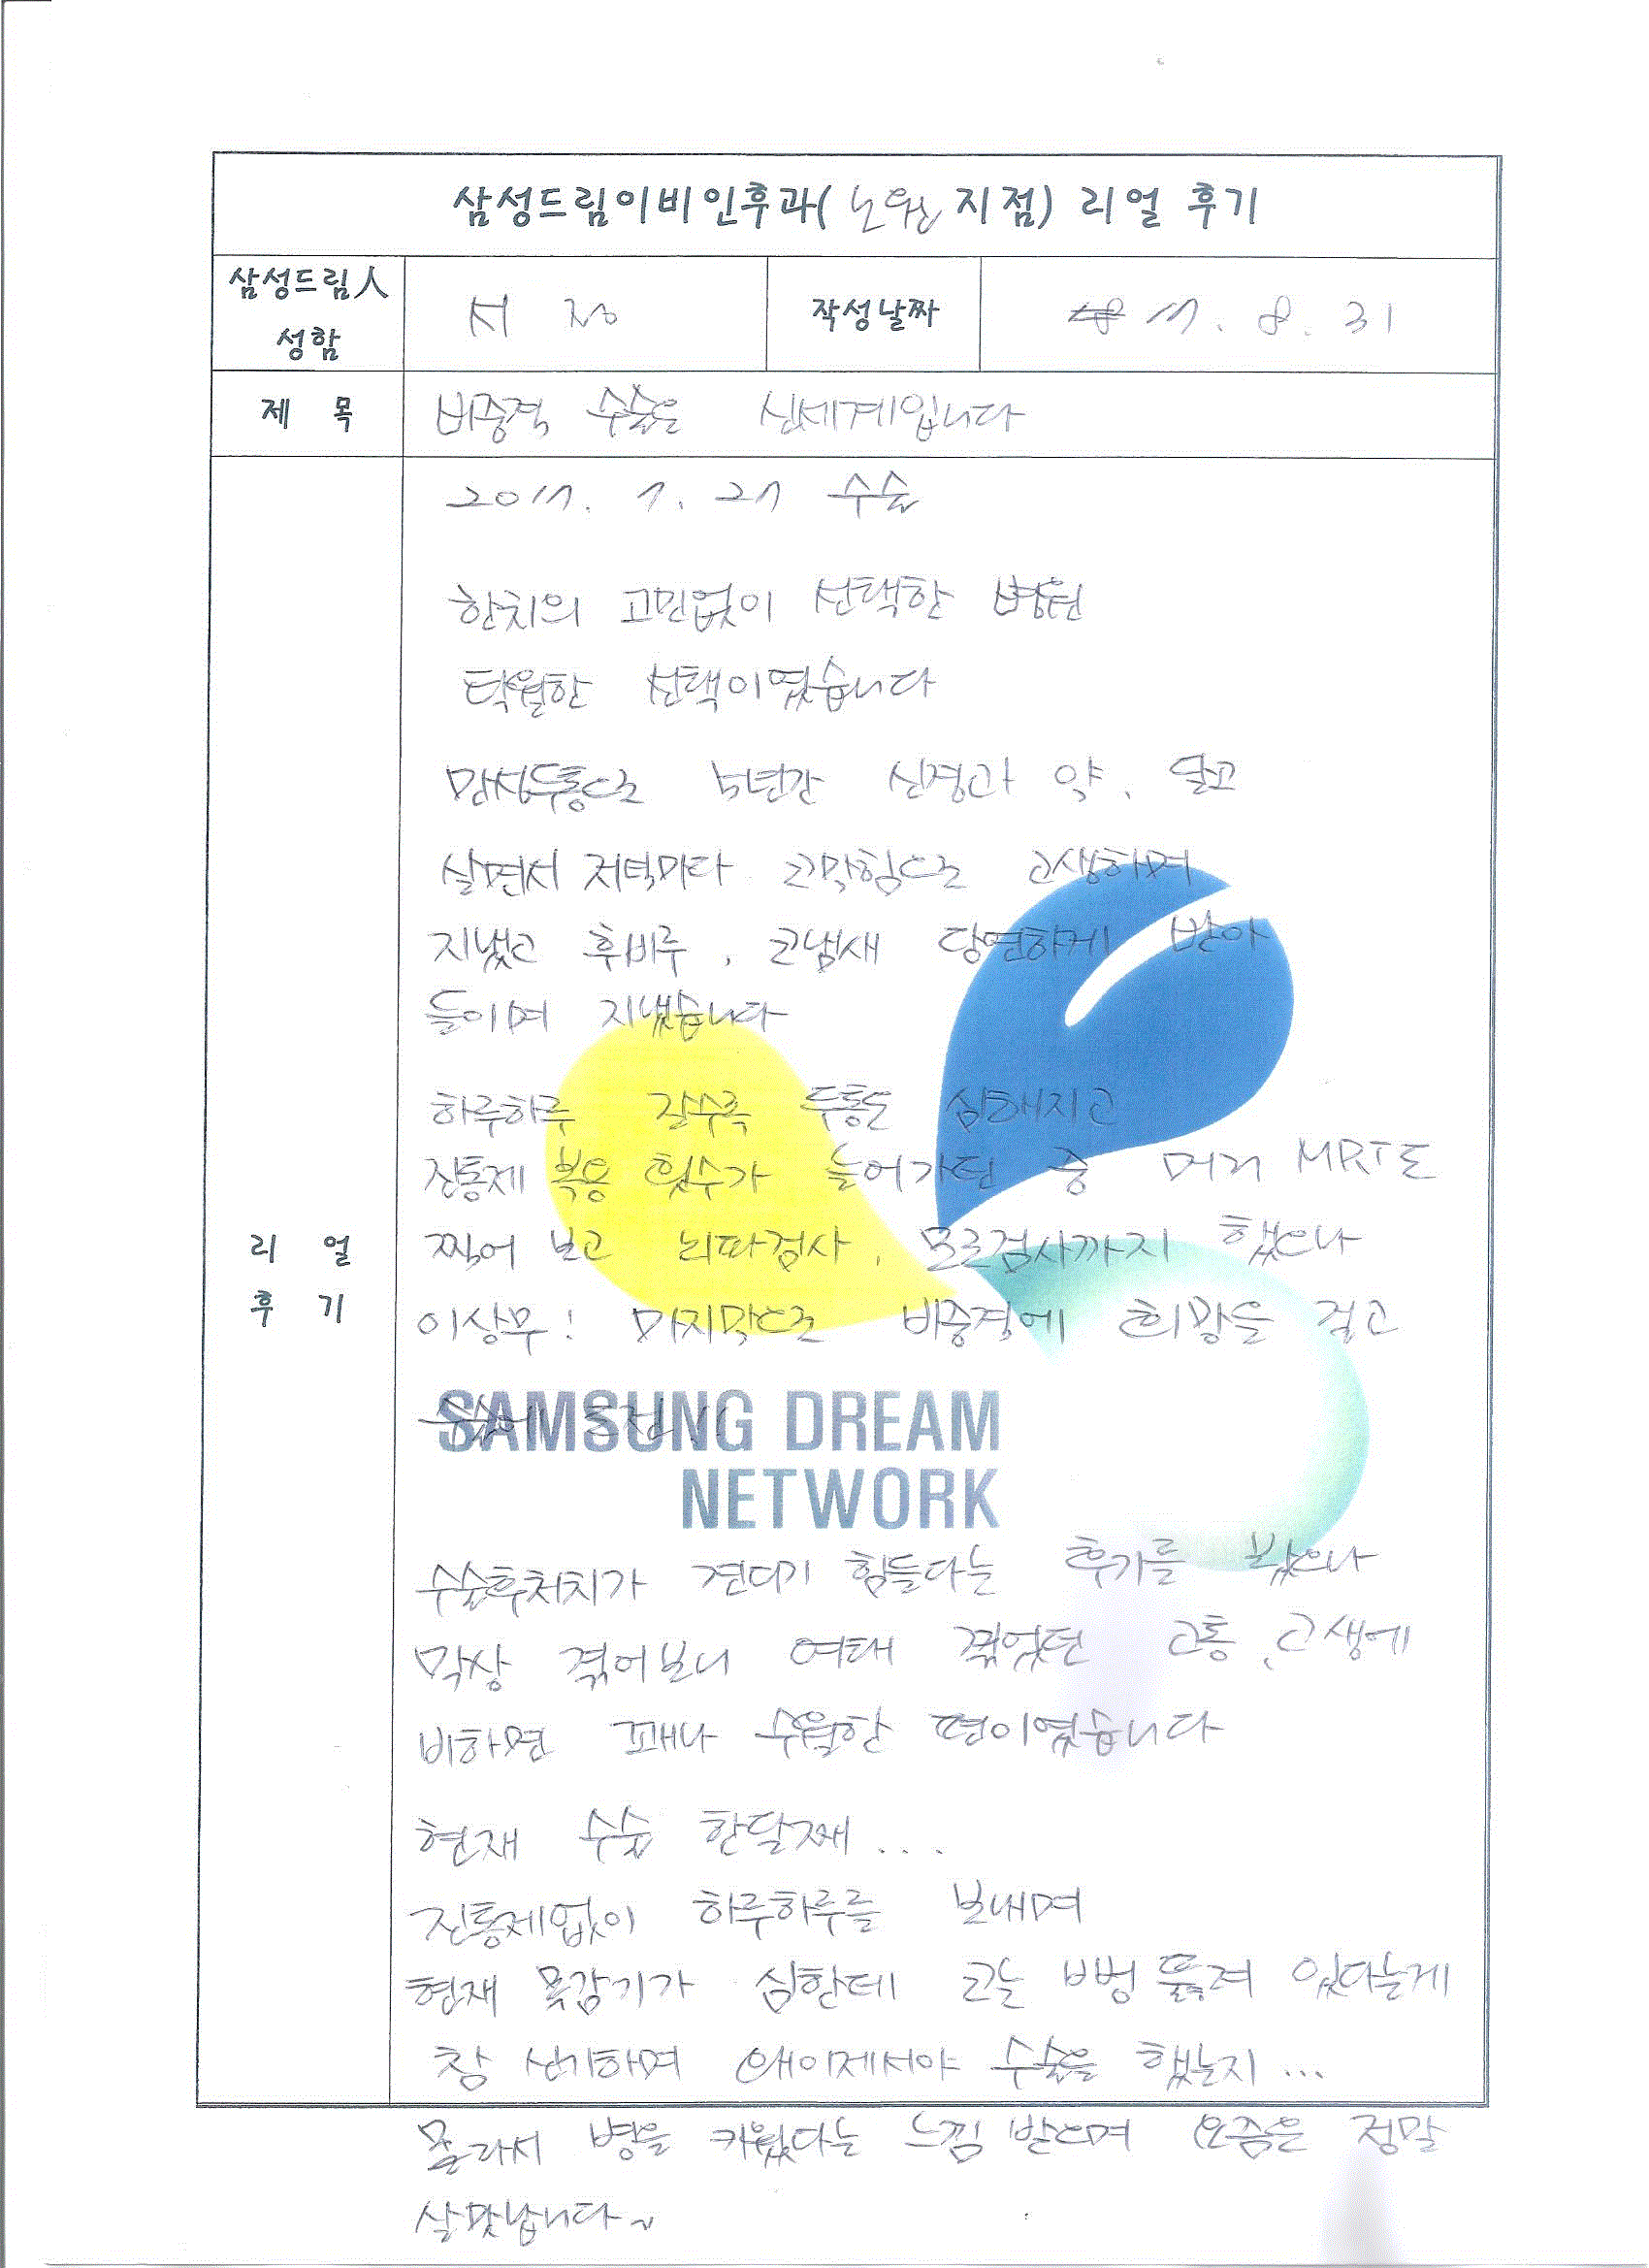 삼성드림이비인후과( 노원 지점) 리얼 후기
삼성드림人 성함
서 정
작성날짜
17. 8. 31
제 목
비중격 수술은 신세계입니다
리 얼 후 기
2017. 7. 27 수술
한치의 고민없이 선택한 병원
탁월한 선택이였습니다
만성두통으로 5년간 신경과 약. 달고
살면서 저녁마다 코막힘으로 고생하며
지냈고 후비루, 코냄새 당연하게 받아
들이며 지냈습니다
하루하루 갈수록 두통은 심해지고
진통제 복용 횟수가 늘어가던 중 머리 MRI도
찍어 보고 뇌파검사, 모르검사까지 했으나
이상무! 마지막으로 비중격에 희망을 걸고
수술에 도전!!
SAMSUNG DREAM
NETWORK
수술후처치가 견디기 힘들다는 후기를 봤으나
막상 겪어보니 여태 겪었던 고통, 고생에
비하면 꽤나 수월한 편이였습니다
현재 수술 한달째....
진통제없이 하루하루를 보내며
현재 목감기가 심한데 코는 뻥 뚫려 있다는게
참 신기하며 왜이제서야 수술을 했는지...
몰라서 병을 키웠다는 느낌 받으며 요즘은 정말
살맛납니다~